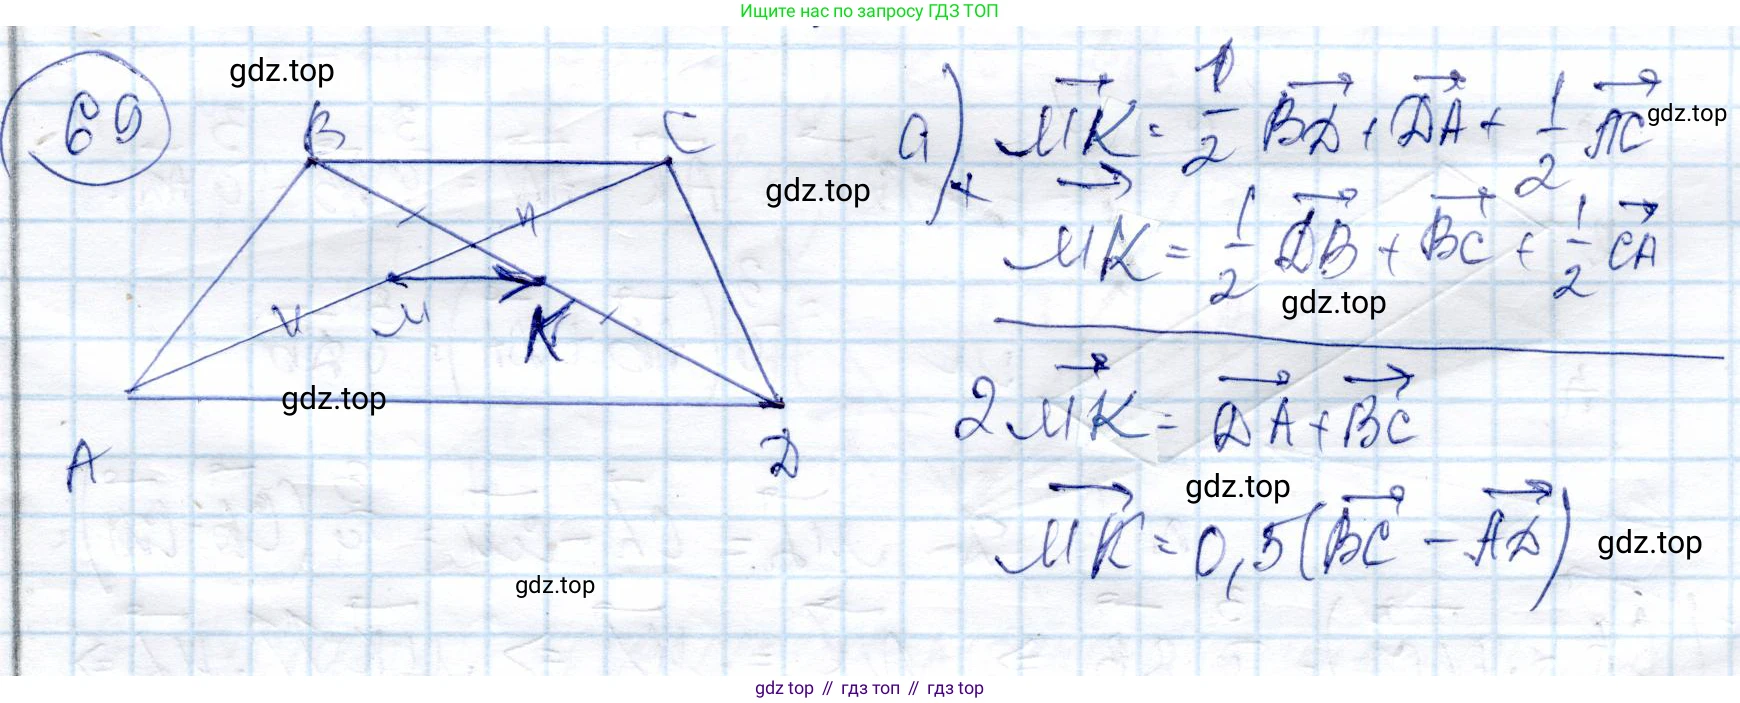 Ищите нас по запросу ГДЗ ТОП
69
gdz.top
B
C
gdz.top
M
K
A
gdz.top
D
gdz.top
а) MK = 1/2 BD + DA + 1/2 AC
gdz.top
+ MK = 1/2 DB + BC + 1/2 CA
gdz.top
2 MK = DA + BC
gdz.top
MK = 0,5(BC - AD)
gdz.top
gdz top // гдз топ // gdz top